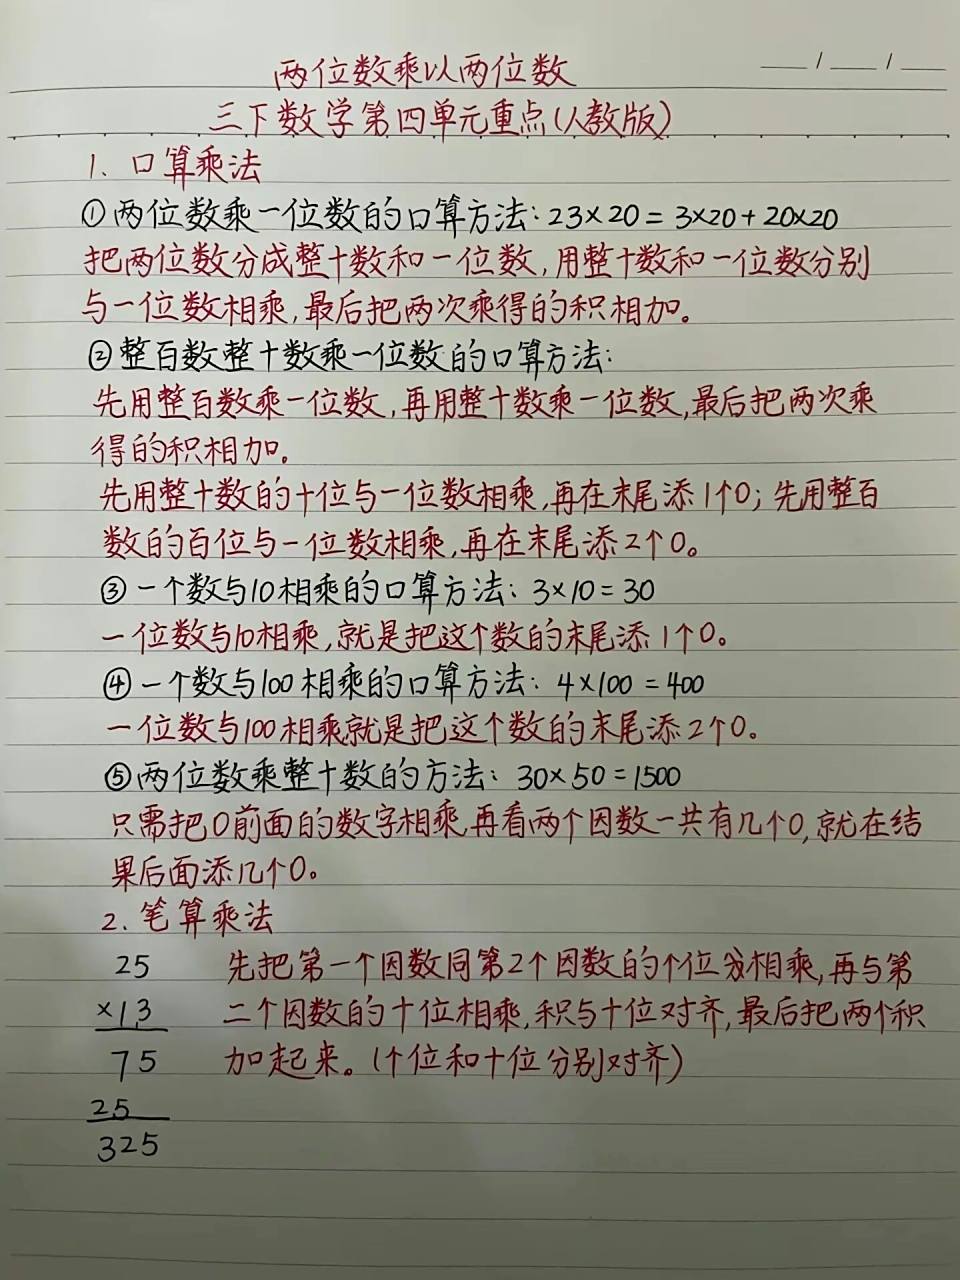 两位数乘以两位数
三下数学第四单元重点(人教版)
1. 口算乘法
①两位数乘一位数的口算方法:23×20=3×20+20×20
把两位数分成整十数和一位数,用整十数和一位数分别
与一位数相乘,最后把两次乘得的积相加。
②整百数整十数乘一位数的口算方法:
先用整百数乘一位数,再用整十数乘一位数,最后把两次乘
得的积相加。
先用整十数的十位与一位数相乘,再在末尾添1个0;先用整百
数的百位与一位数相乘,再在末尾添2个0。
③一个数与10相乘的口算方法:3×10=30
一位数与10相乘,就是把这个数的末尾添1个0。
④一个数与100相乘的口算方法:4×100=400
一位数与100相乘就是把这个数的末尾添2个0。
⑤两位数乘整十数的方法:30×50=1500
只需把0前面的数字相乘,再看两个因数一共有几个0,就在结
果后面添几个0。
2. 笔算乘法
25 先把第一个因数同第2个因数的个位相乘,再与第
×13 二个因数的十位相乘,积与十位对齐,最后把两个积
75 加起来。(个位和十位分别对齐)
25
325